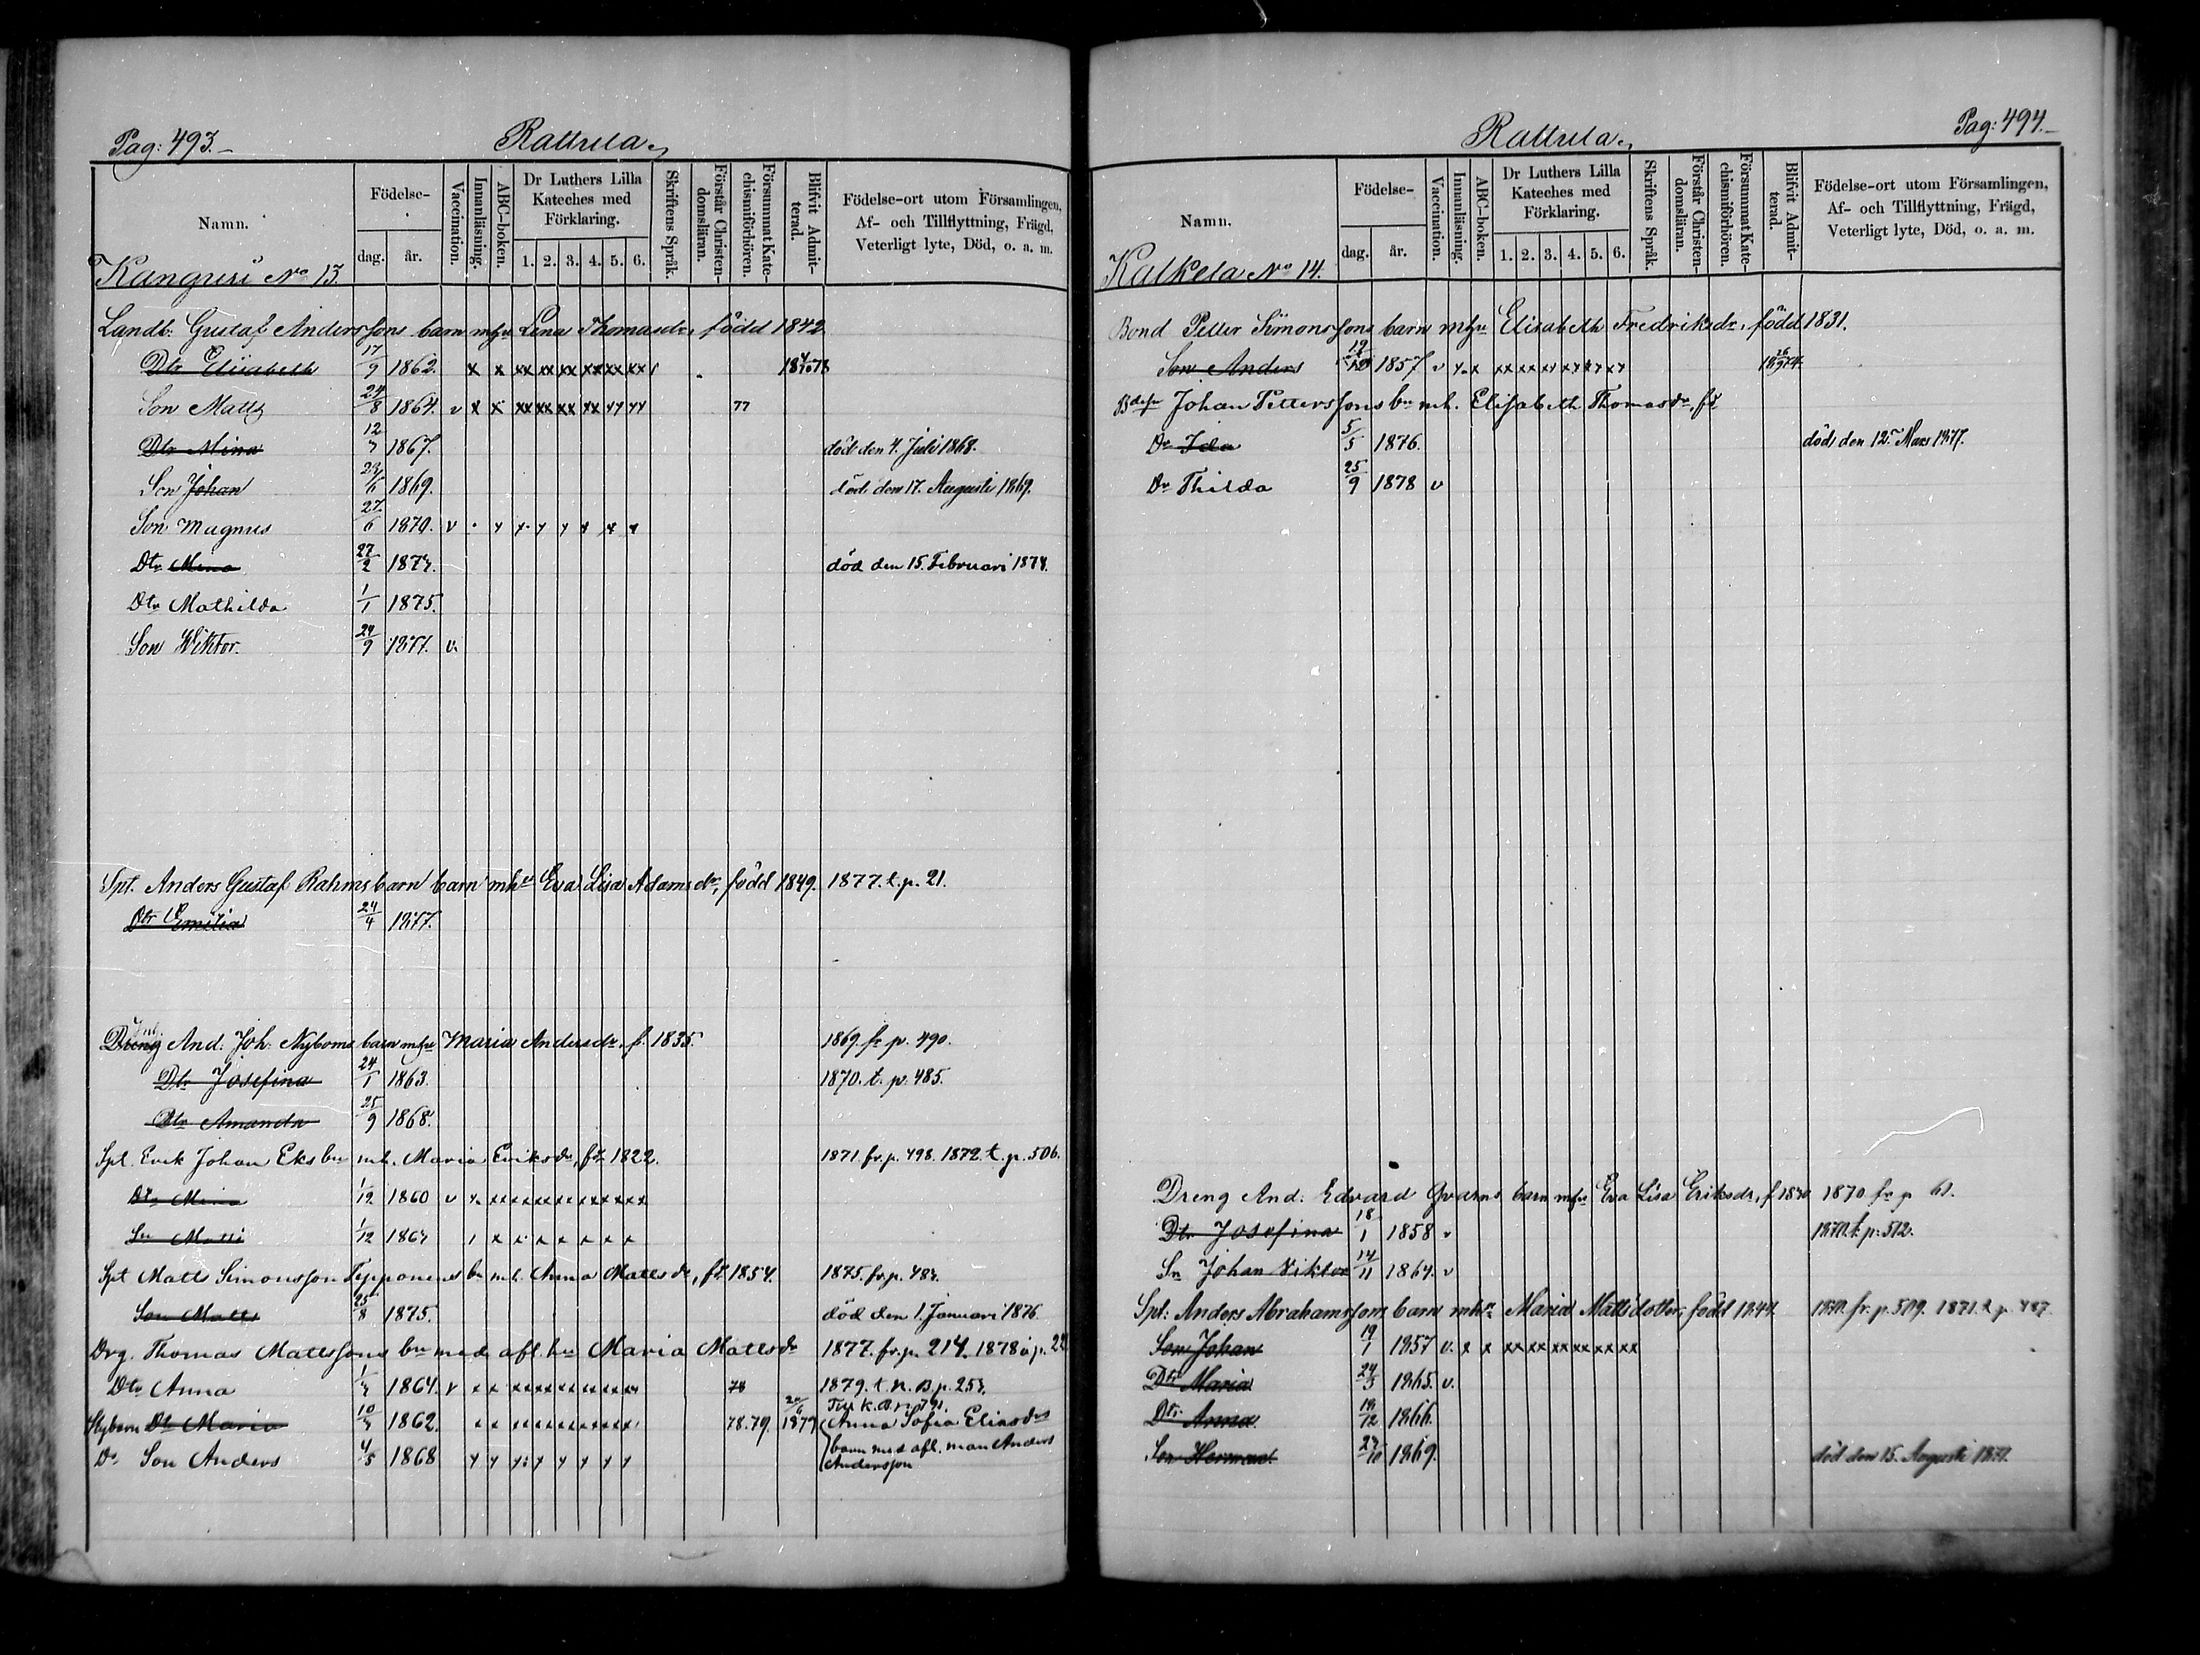 Pag: 493.
Rattula,
Namn.
Födelse-
dag.
år.
Vaccination.
Innanläsning.
ABC-boken.
Dr Luthers Lilla
Kateches med
Förklaring.
1. 2. 3. 4. 5. 6.
Skriftens Språk.
Förstår Christen-
domsläran.
Försummat Kate-
chismiförhören.
Blifvit Admit-
terad.
Födelse-ort utom Församlingen,
Af- och Tillflyttning, Frägd,
Veterligt lyte, Död, o. a. m.
Kanguri No 13.
Landb. Gustaf Anderssons barn mhu Lena Thomasdr, född 1842
Dtr Elisabeth 17/9 1862. x x xx xx xx xx xx xx 18 4/10 78
Son Matts 24/8 1864. v x x xx xx xx xx xx xx 77
Dtr Mina 12/7 1867. död den 4. Juli 1868.
Son Johan 23/6 1869. död den 17. Augusti 1869.
Son Magnus 27/6 1870. v . x x x x x x x
Dtr Mina 27/2 1873. död den 15. Februari 1874.
Dtr Mathilda 1/1 1875.
Son Wiktor. 24/9 1877. v.
Spt. Anders Gustaf Rahms barn barn mhu Eva Lisa Adamsdr, född 1849. 1877. t. p. 21.
Dtr Emilia 24/4 1877.
Dreng And. Joh. Nyboms barn mhu Maria Andersdr. f. 1835. 1869. fr p. 490.
Dtr Josefina 24/1 1863. 1870. t. p. 485.
Dtr Amanda 25/9 1868.
Spt. Erik Johan Eks bn mh. Maria Eriksdr, fd 1822. 1871. fr. p. 498. 1872. t. p. 506.
Dtr Mina 1/12 1860 v x xx xx xx xx xx xx xx
Sn Matti 1/12 1867 x x x x x x x
Spt Matts Simonsson Tepponens bn mh. Anna Mattsdr, fd 1854. 1875. fr. p. 483.
Son Matts 25/8 1875. död den 1. Januari 1876.
Drg. Thomas Mattssons bn med afl. hu Maria Mattsdr 1877. fr. p. 214. 1878 i p. 22
Dtr Anna 1/3 1864. v x x xx xx xx xx xx xx 78 1879. t. N. B. p. 253.
Styvbarn Dtr Maria 10/3 1862. x x xx xx xx xx xx xx 78. 79. 1879 Anna Sofia Eliasdrs
barn med afl. man Anders
Andersson
Do Son Anders 4/5 1868 x x x x x x x x
Pag: 494.
Rattula,
Namn.
Födelse-
dag.
år.
Vaccination.
Innanläsning.
ABC-boken.
Dr Luthers Lilla
Kateches med
Förklaring.
1. 2. 3. 4. 5. 6.
Skriftens Språk.
Förstår Christen-
domsläran.
Försummat Kate-
chismiförhören.
Blifvit Admit-
terad.
Födelse-ort utom Församlingen,
Af- och Tillflyttning, Frägd,
Veterligt lyte, Död, o. a. m.
Kalkela No 14.
Bond Petter Simonssons barn mhu Elisabeth Fredriksdr, född 1831.
Son Anders 19/12 1857 v x x xx xx xx xx xx xx 18 26/9 74.
Johan Petterssons bn mh. Elisabeth Thomasdr, fd
Dr Ida 5/5 1876. död den 12. Mars 1877.
Dr Thilda 25/9 1878 v
Dreng And. Edvard Qvarns barn mhu Eva Lisa Eriksdr, f. 1830 1870 fr p 61.
Dtr Josefina 18/1 1858 v 1870. t p. 512.
Sn Johan Viktor 14/11 1864. v
Spt: Anders Abrahamssons barn mhu Maria Mattsdotter, född 1844. 1870. fr. p. 509. 1871. t p. 487.
Son Johan 19/1 1857 v. x x xx xx xx xx xx xx
Dtr Maria 24/3 1865. v.
Dtr Anna 19/12 1866.
Son Herman 27/10 1869. död den 15. Augusti 1871.